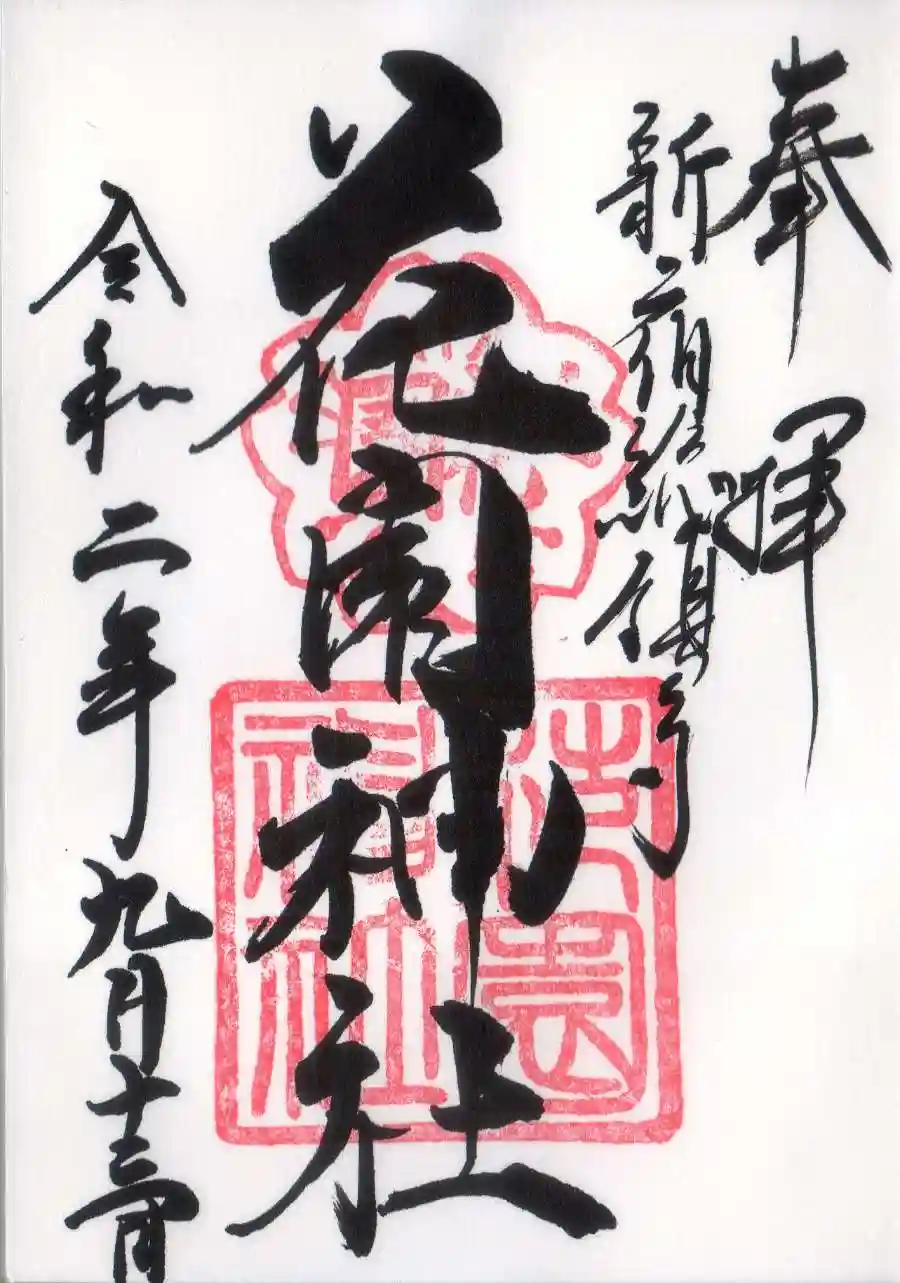 奉拝
新宿総鎮守
花園神社
令和二年九月十三日
花園神社